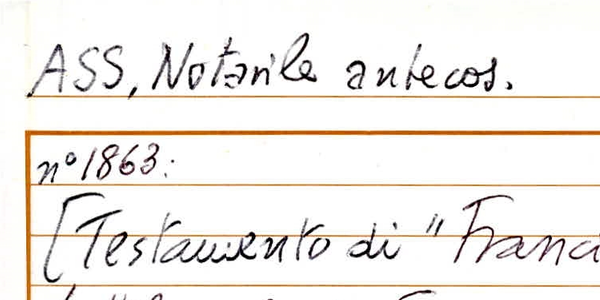 ASS, Notarile antecos.
n° 1863:
[Testamento di "Franci